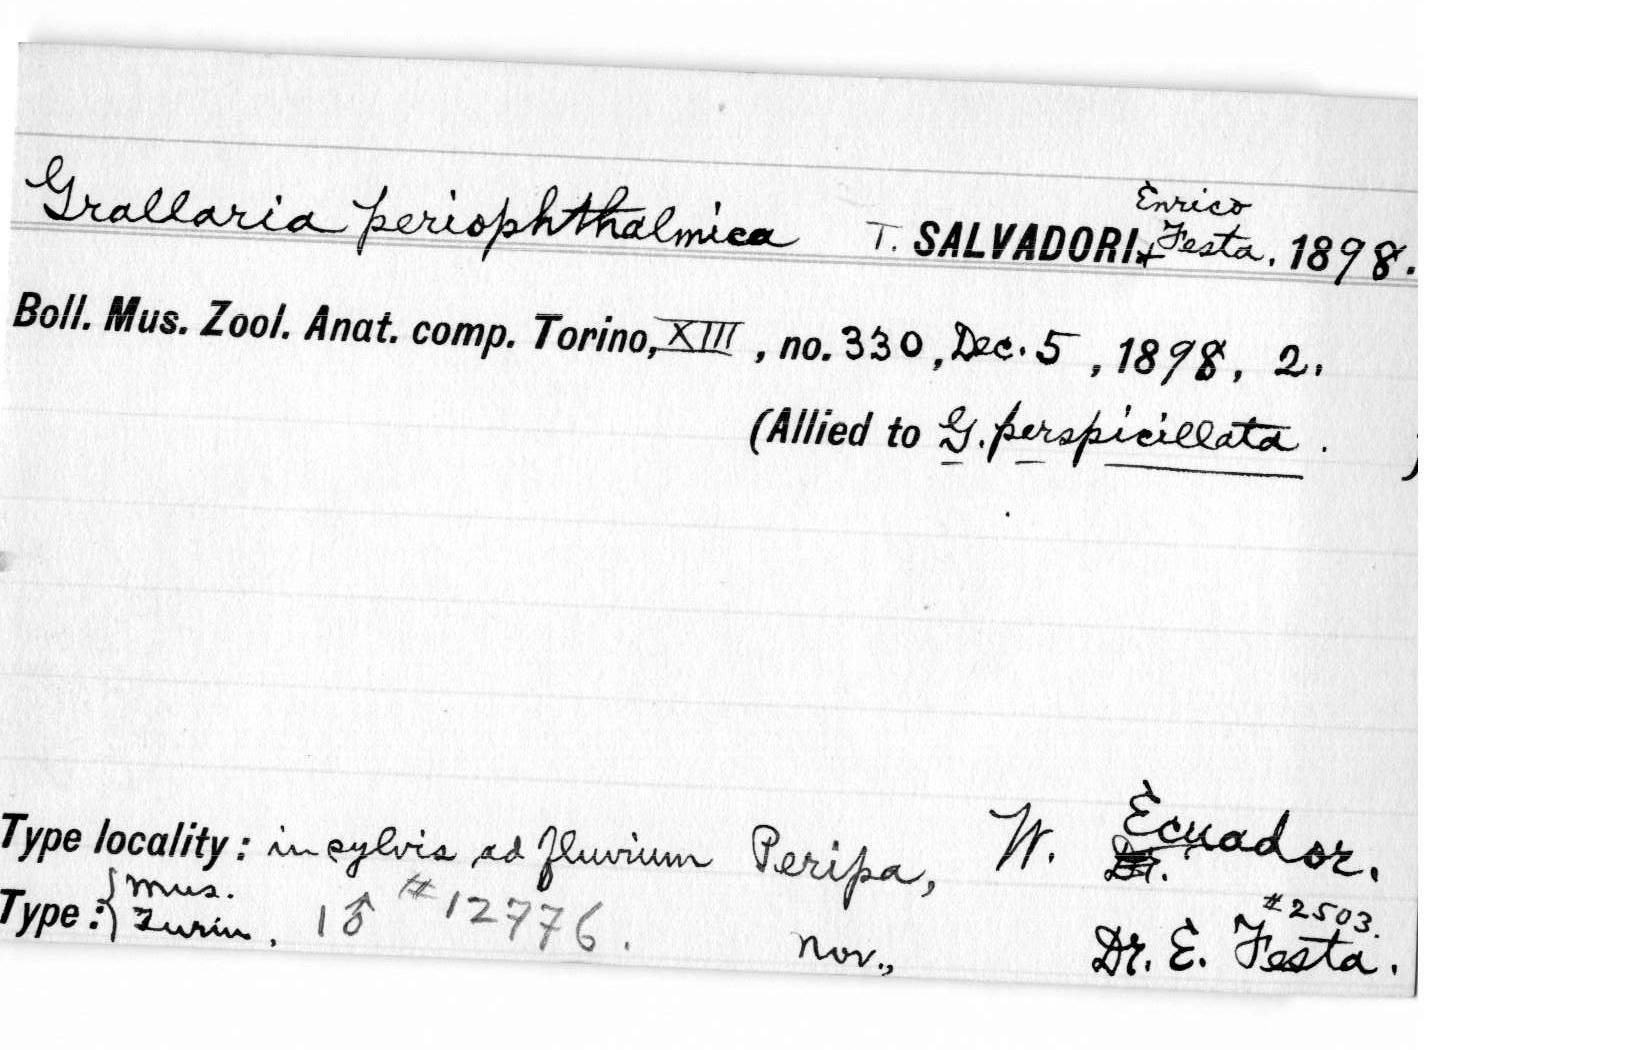 Grallaria periophthalmica T. SALVADORI & Enrico Festa, 1898.
Boll. Mus. Zool. Anat. comp. Torino, XIII, no. 330, Dec. 5, 1898, 2.
(Allied to G. perspicillata. )
Type locality: in sylvis ad fluvium Peripa, W. Ecuador.
Type: { Mus. Turin, 1 ♂ #12776. Nov., Dr. E. Festa. #2503.